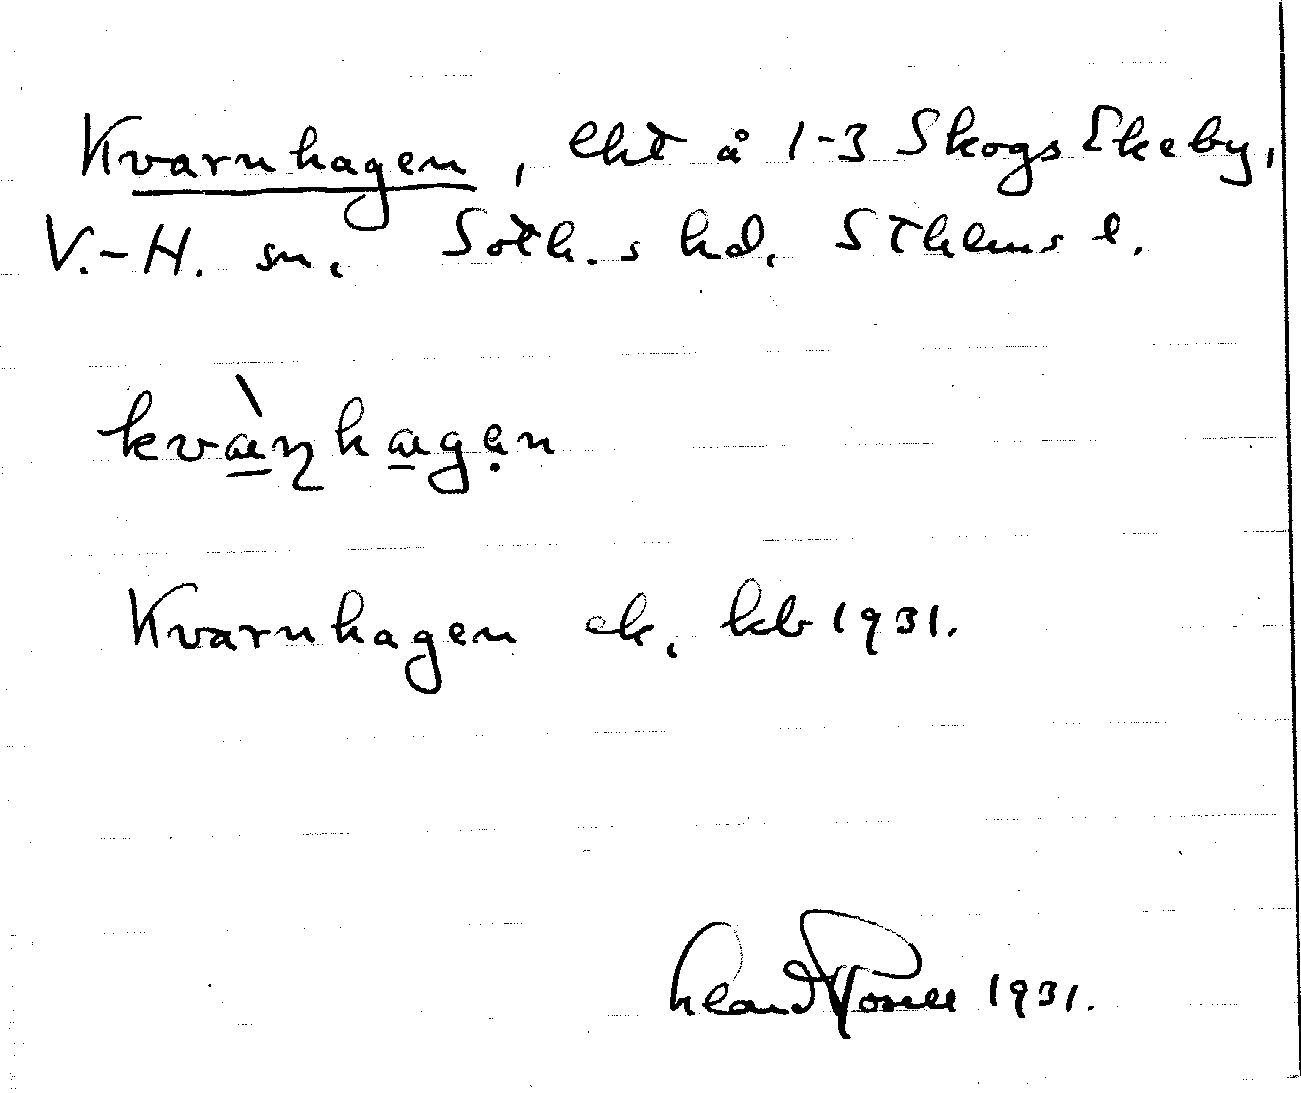 Kvarnhagen, lht å 1-3 Skogs Ekeby,
V.-H. sn. Soth.s hd. Sthlms l.
kvὰɳhagẹn
Kvarnhagen ek. kb 1931.
1931.